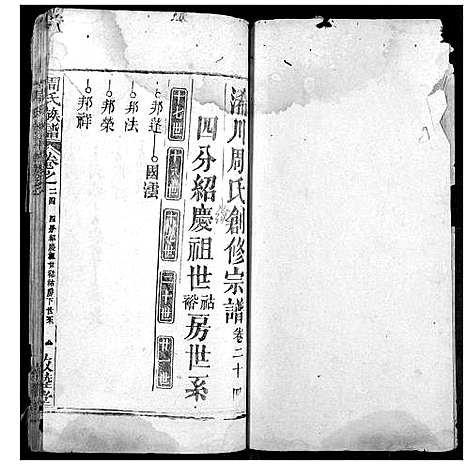 涌川周氏創修宗譜 卷二十四
四分紹慶祖世祜裕房世系
十七世 十八世 十九世 二十世 廿一世
邦蓬 國澐
邦法
邦榮
邦祥
周氏族譜 卷之二十四 四分紹慶祖世祜裕房下世系 一 敦睦堂